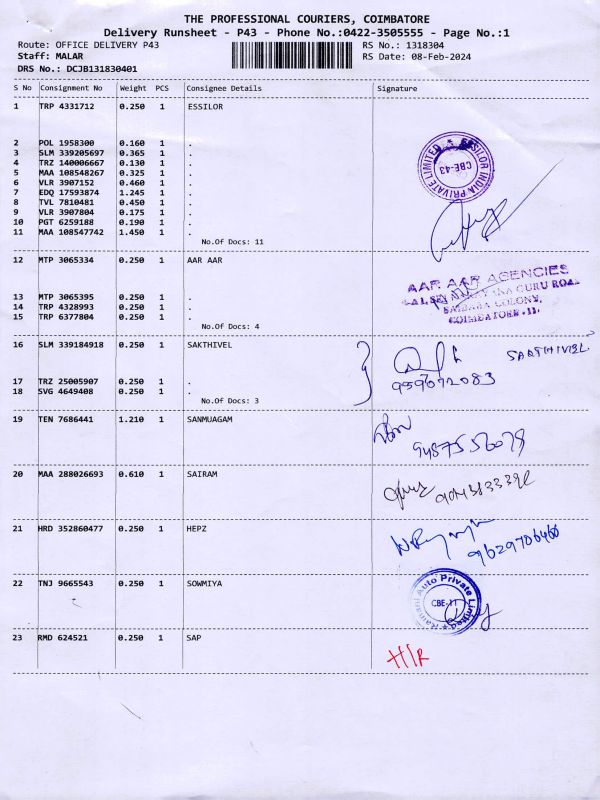 THE PROFESSIONAL COURIERS, COIMBATORE
Delivery Runsheet - P43 - Phone No.:0422-3505555 - Page No.:1
Route: OFFICE DELIVERY P43 RS No.: 1318304
Staff: MALAR RS Date: 08-Feb-2024
DRS No.: DCJB131830401
S No Consignment No Weight PCS Consignee Details Signature
1 TRP 4331712 0.250 1 ESSILOR
2 POL 1958300 0.160 1 .
3 SLM 339205697 0.365 1 .
4 TRZ 140006667 0.130 1 .
5 MAA 108548267 0.325 1 .
6 VLR 3907152 0.460 1 .
7 EDQ 17593874 1.245 1 .
8 TVL 7810481 0.450 1 .
9 VLR 3907804 0.175 1 .
10 PGT 6259188 0.190 1 .
11 MAA 108547742 1.450 1 .
No.Of Docs: 11
ESSILOR INDIA PRIVATE LIMITED
CBE-43
12 MTP 3065334 0.250 1 AAR AAR
13 MTP 3065395 0.250 1 .
14 TRP 4328993 0.250 1 .
15 TRP 6377804 0.250 1 .
No.Of Docs: 4
AAR AAR AGENCIES
GURU ROAD
SAIBABA COLONY,
COIMBATORE - 11.
16 SLM 339184918 0.250 1 SAKTHIVEL
17 TRZ 25005907 0.250 1 .
18 SVG 4649408 0.250 1 .
No.Of Docs: 3
SAKTHIVEL
959692083
19 TEN 7686441 1.210 1 SANMUAGAM
9487556078
20 MAA 288026693 0.610 1 SAIRAM
21 HRD 352860477 0.250 1 HEPZ
9629706466
22 TNJ 9665543 0.250 1 SOWMIYA
Auto Private Limited
CBE-11
23 RMD 624521 0.250 1 SAP
H/R